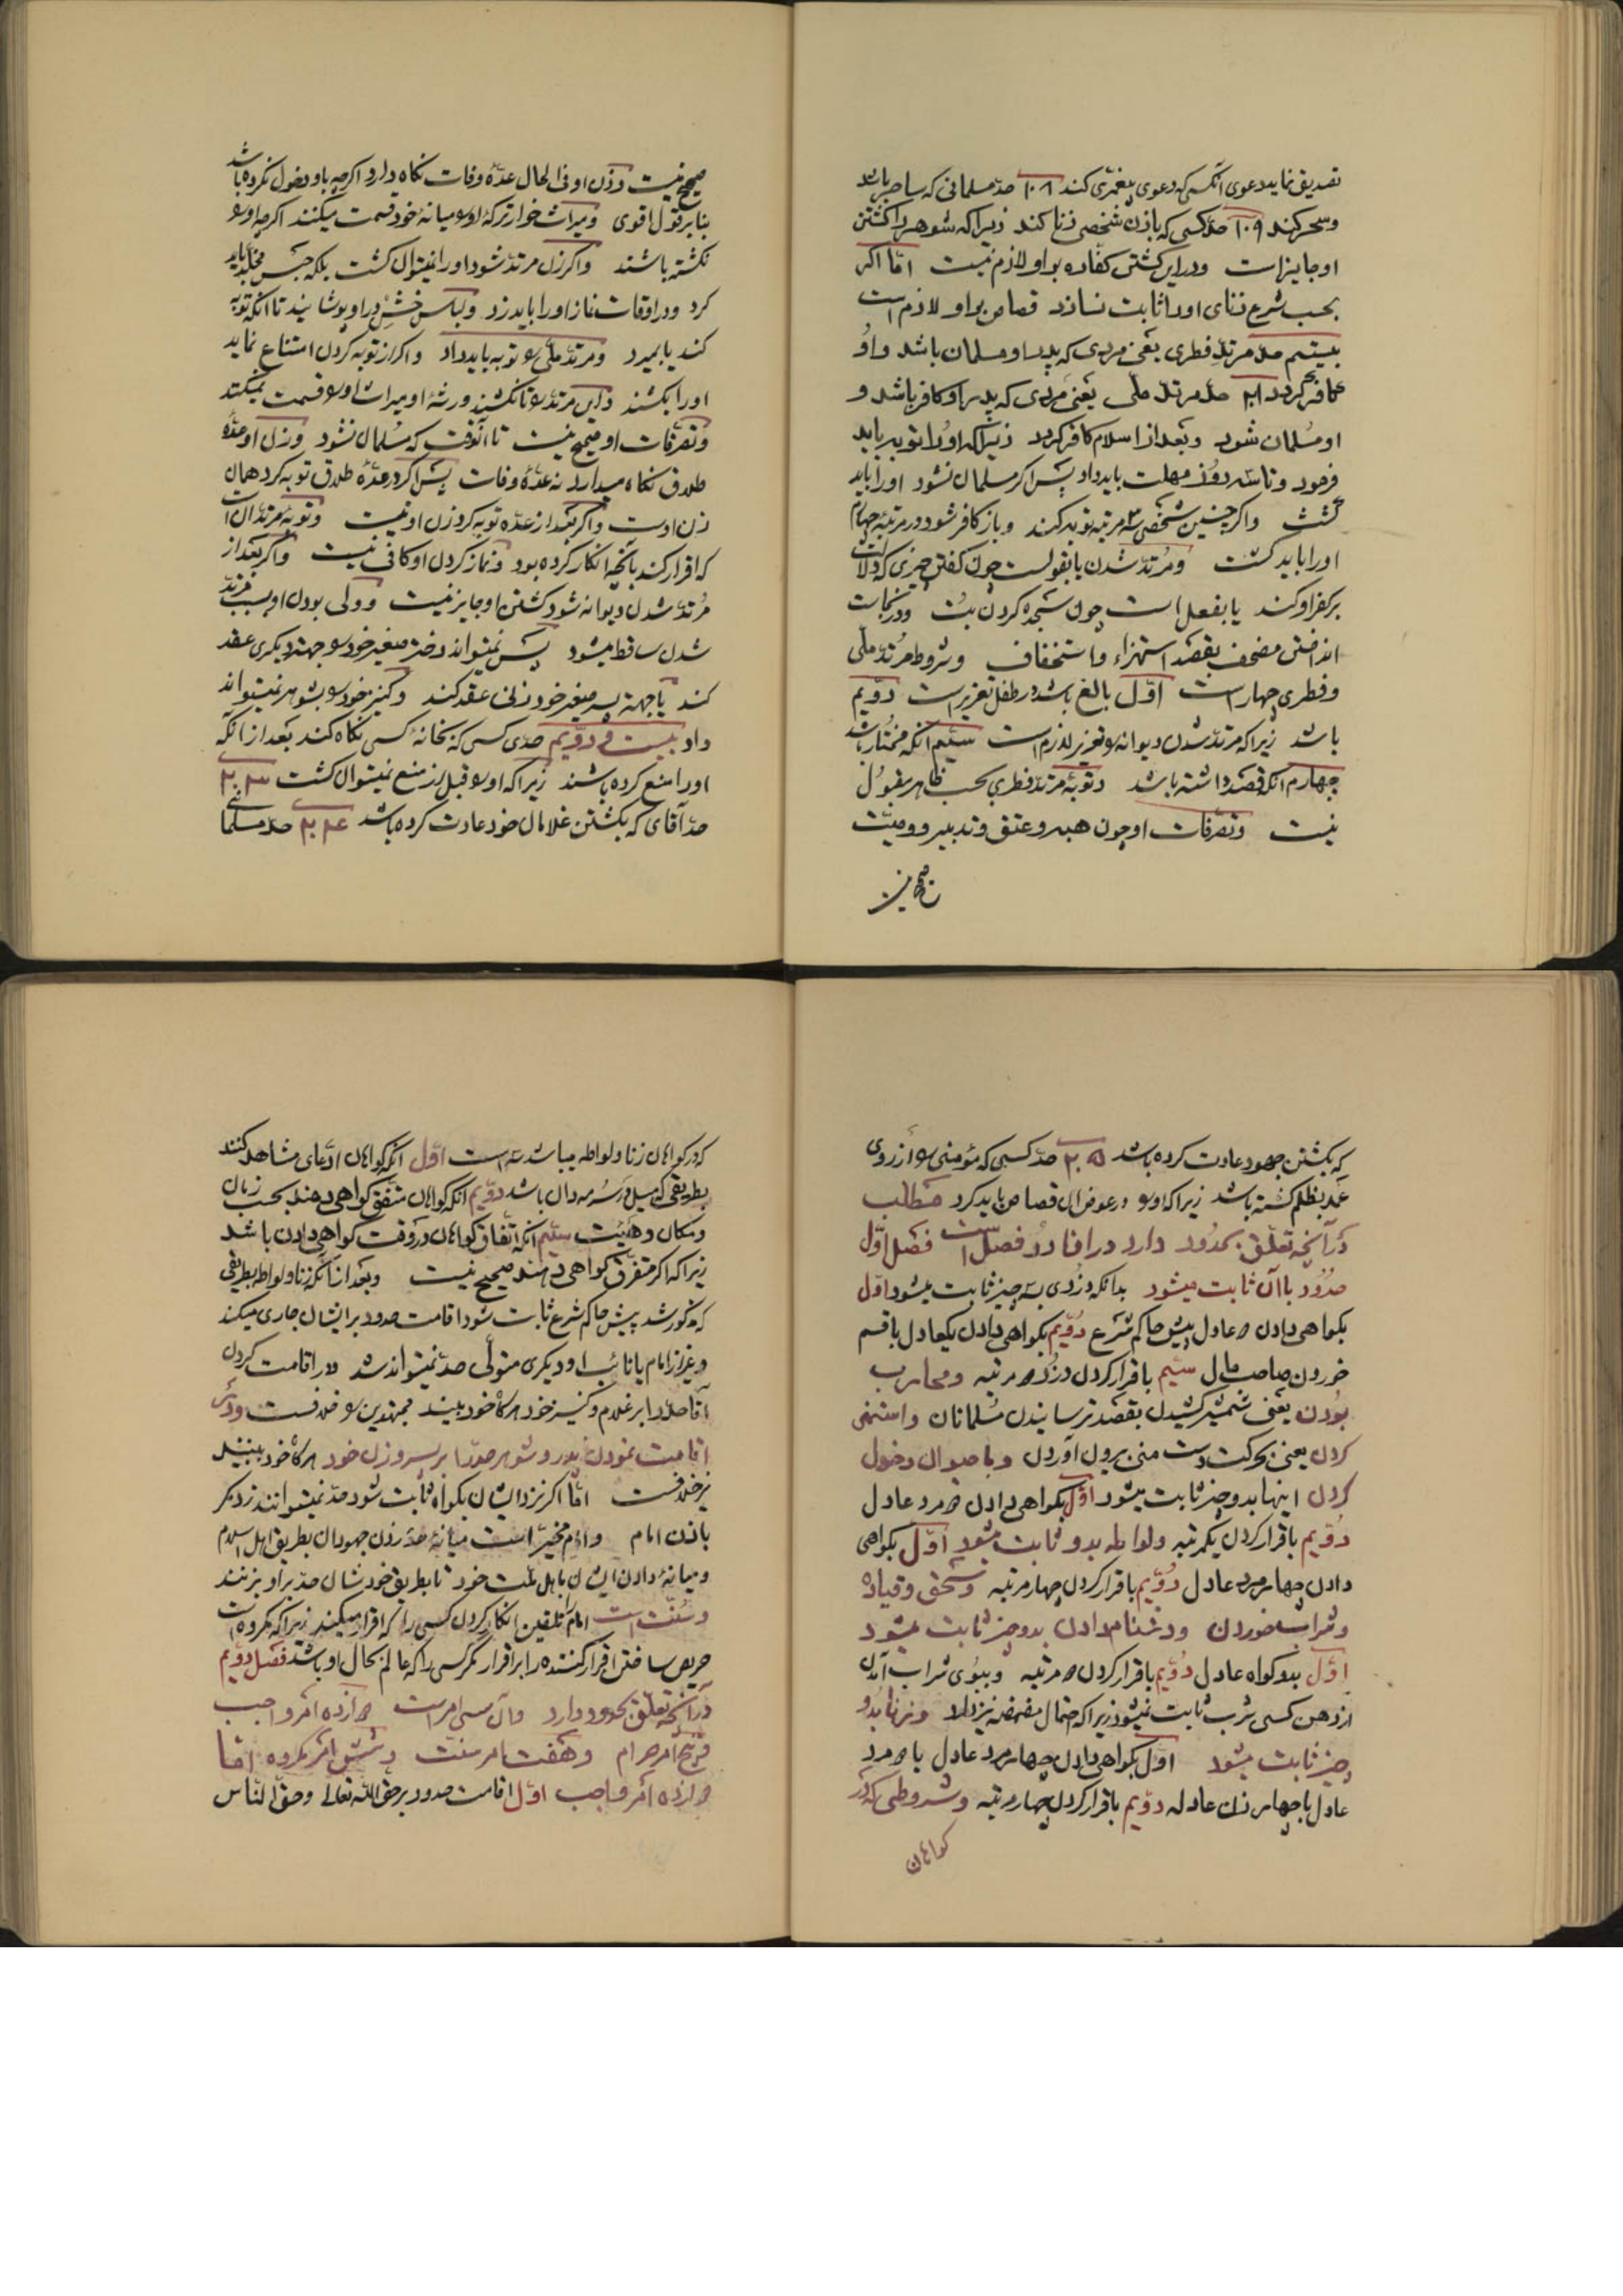 تصدیق نماید دعوی آنکسی که دعوی پیغمبری کند ۱۰۸ حدّ مسلمانی که ساحر باشد
وسحر کند ۱۰۹ حدّ کسی که بازن شخصی زنا کند زیرا که شوهر را کشتن
او جایز است ودر این کشتن کفاره بر او لازم نیست امّا اگر
بحسب شرع زنای او را ثابت نسازد قصاص بر او لازم است
بیستم حدّ مرتد فطری یعنی مردی که پدر او مسلمان باشد واو
کافر گردد ۲۱ حدّ مرتد ملّی یعنی مردی که پدر او کافر باشد و
او مُسلمان شود وبعد از اسلام کافر گردد زیرا که او را توبه باید
فرمود وتا سه روز مهلت باید داد پس اگر مسلمان نشود او را باید
کشت واگر چنین شخصی ۳ مرتبه توبه کند وباز کافر شود در مرتبهٔ چهارم
او را باید کشت ومُرتد شدن یا بقولست چون گفتن چیزی که دلالت
بر کفر او کند یا بفعل است چون سجده کردن بُت ودر نجاست
انداختن مصحف بقصد استهزاء واستخفاف وشروط مُرتد ملّی
وفطری چهار است اوّل بالغ باشد در طفل تعزیر است دوّیم
باشد زیرا که مرتد شدن دیوانه را تعزیر لازم است سیّم آنکه مختار باشد
چهارم آنکه قصد داشته باشد وتوبهٔ مرتد فطری بحسب ظاهر مقبُول
نیست وتصرّفات او چون هبه وعتق وتدبیر ووصیّت
صحیح نیست وزن او فی الحال عدّهٔ وفات نگاه دارد اگرچه باو دخول نکرده باشد
بنا بر قول اقوی ومیراث خوار ترکهٔ او را میانهٔ خود قسمت میکنند اگرچه او را
نکشته باشند واگر زن مرتد شود او را نمیتوان کشت بلکه حبس مخلّد باید
کرد ودر اوقات نماز او را باید زد ولباس خشن در او پوشانید تا آنکه توبه
کند یا بمیرد ومرتد ملّی را توبه باید داد واگر از توبه کردن امتناع نماید
او را بکشند واین مرتد را تا نکشند ورثهٔ او میراث او را قسمت نمیکنند
وتصرّفات او صحیح نیست تا آنوقت که مُسلمان نشود وزن او عدّهٔ
طلاق نگاه میدارد نه عدّهٔ وفات پس اگر در عدّهٔ طلاق توبه کرد همان
زن اوست واگر بعد از عدّه توبه کرد زن او نیست وتوبهٔ مرتد آن است
که اقرار کند بآنچه انکار کرده بود ونماز کردن او کافی نیست واگر بعد از
مُرتد شدن دیوانه شود کشتن او جایز نیست وولی بودن او بسبب مرتد
شدن ساقط میشود پس نمیتواند دختر صغیر خود را جهت دیگری عقد
کند یا جهت پسر صغیر خود زنی عقد کند وکنیز خود را بشوهر نمیتواند
داد بیست ودوّیم حدّ کسی که بخانهٔ کسی نگاه کند بعد از آنکه
او را منع کرده باشند زیرا که او را قبل از منع نمیتوان کشت ۲۳
حدّ آقای که بکشتن غلامان خود عادت کرده باشد ۲۴ حدّ مسلمانی
که بکشتن جهود عادت کرده باشد ۲۵ حدّ کسی که مؤمنی را از روی
عمد بظلم کشته باشد زیرا که او را در عوض آن قصاص باید کرد مَطلب
در آنچه تعلّق بحدُود دارد در آنها دو فصل است فصل اوّل
حدُود باآن ثابت میشود بدانکه دزدی بسه چیز ثابت میشود اوّل
بگواهی دادن ۲ عادل پیش حاکم شرع دُوّیم بگواهی دادن یکعادل باقسم
خوردن صاحب مال سیّم باقرار کردن دزد ۲ مرتبه ومحارب
بُودن یعنی شمشیر کشیدن بقصد ترسانیدن مُسلمانان واستمنی
کردن یعنی بحرکت دست منی بیرون آوردن وبا حیوان دخول
کردن اینها بدو چیز ثابت میشود اوّل بگواهی دادن ۲ مرد عادل
دُوّیم باقرار کردن یکمرتبه ولواطه بدو ثابت میشود اوّل بگواهی
دادن چهار مرد عادل دُوّیم باقرار کردن چهار مرتبه وسَحق وقیاده
وشراب خوردن ودشنام دادن بدو چیز ثابت میشود
اوّل بدو گواه عادل دُوّیم باقرار کردن ۲ مرتبه وببُوی شراب آمدن
از دهن کسی شرب ثابت نمیشود زیرا که احتمال مضمضه نیز دارد وزنا بدو
چیز ثابت میشود اوّل بگواهی دادن چهار مرد عادل یا ۳ مرد
عادل با چهار زن عادله دوّیم باقرار کردن چهار مرتبه وشروطی که در
گواهان
که در گواهان زنا ولواطه میباشد سه است اوّل آنکه گواهان ادّعای مشاهده کنند
بطریقی که میل در سُرمه دان باشد دوّیم آنکه گواهان متّفق گواهی دهند بحسب زمان
ومکان وهیئت سیّم آنکه اتّفاق گواهان در وقت گواهی دادن باشد
زیرا که اگر متفرّق گواهی دهند صحیح نیست وبعد از آنکه زنا ولواطه بطریقی
که مذکور شد پیش حاکم شرع ثابت شود اقامت حدود بر ایشان جاری میکند
وغیر از امام یا نائب او دیگری متولّی حدّ نمیتواند شد ودر اقامت کردن
آقا حدّ را بر غلام وکنیز خود هرگاه خود ببیند مجتهدین را خلافست ودر
اقامت نمودن پدر وشوهر حدّ را بر پسر وزن خود هرگاه خود ببینند
نیز خلافست امّا اگر نزد ایشان بگواه ثابت شود حدّ نمیتوانند زد مگر
باذن امام وامام مخیّر است میانهٔ حدّ زدن جهودان بطریق اهل اسلام
ومیانهٔ دادن ایشان باهل ملّت خود تا بطریق خودشان حدّ بر او بزنند
وسُنّت است امام را تلقین انکار کردن کسی را که اقرار میکند زیرا که مکروه است
حریص ساختن اقرار کننده را بر اقرار مگر کسی را که عالم بحال او باشد فصل دوّیم
در آنچه تعلّق بحدود دارد وآن سی امر است ۱۲ امر واجب
وپنج امر حرام وهفت امر سنّت وشش امر مکروه امّا
دوازده امر واجب اوّل اقامت حدود بر حق اللّه تعالی وحقّ النّاس